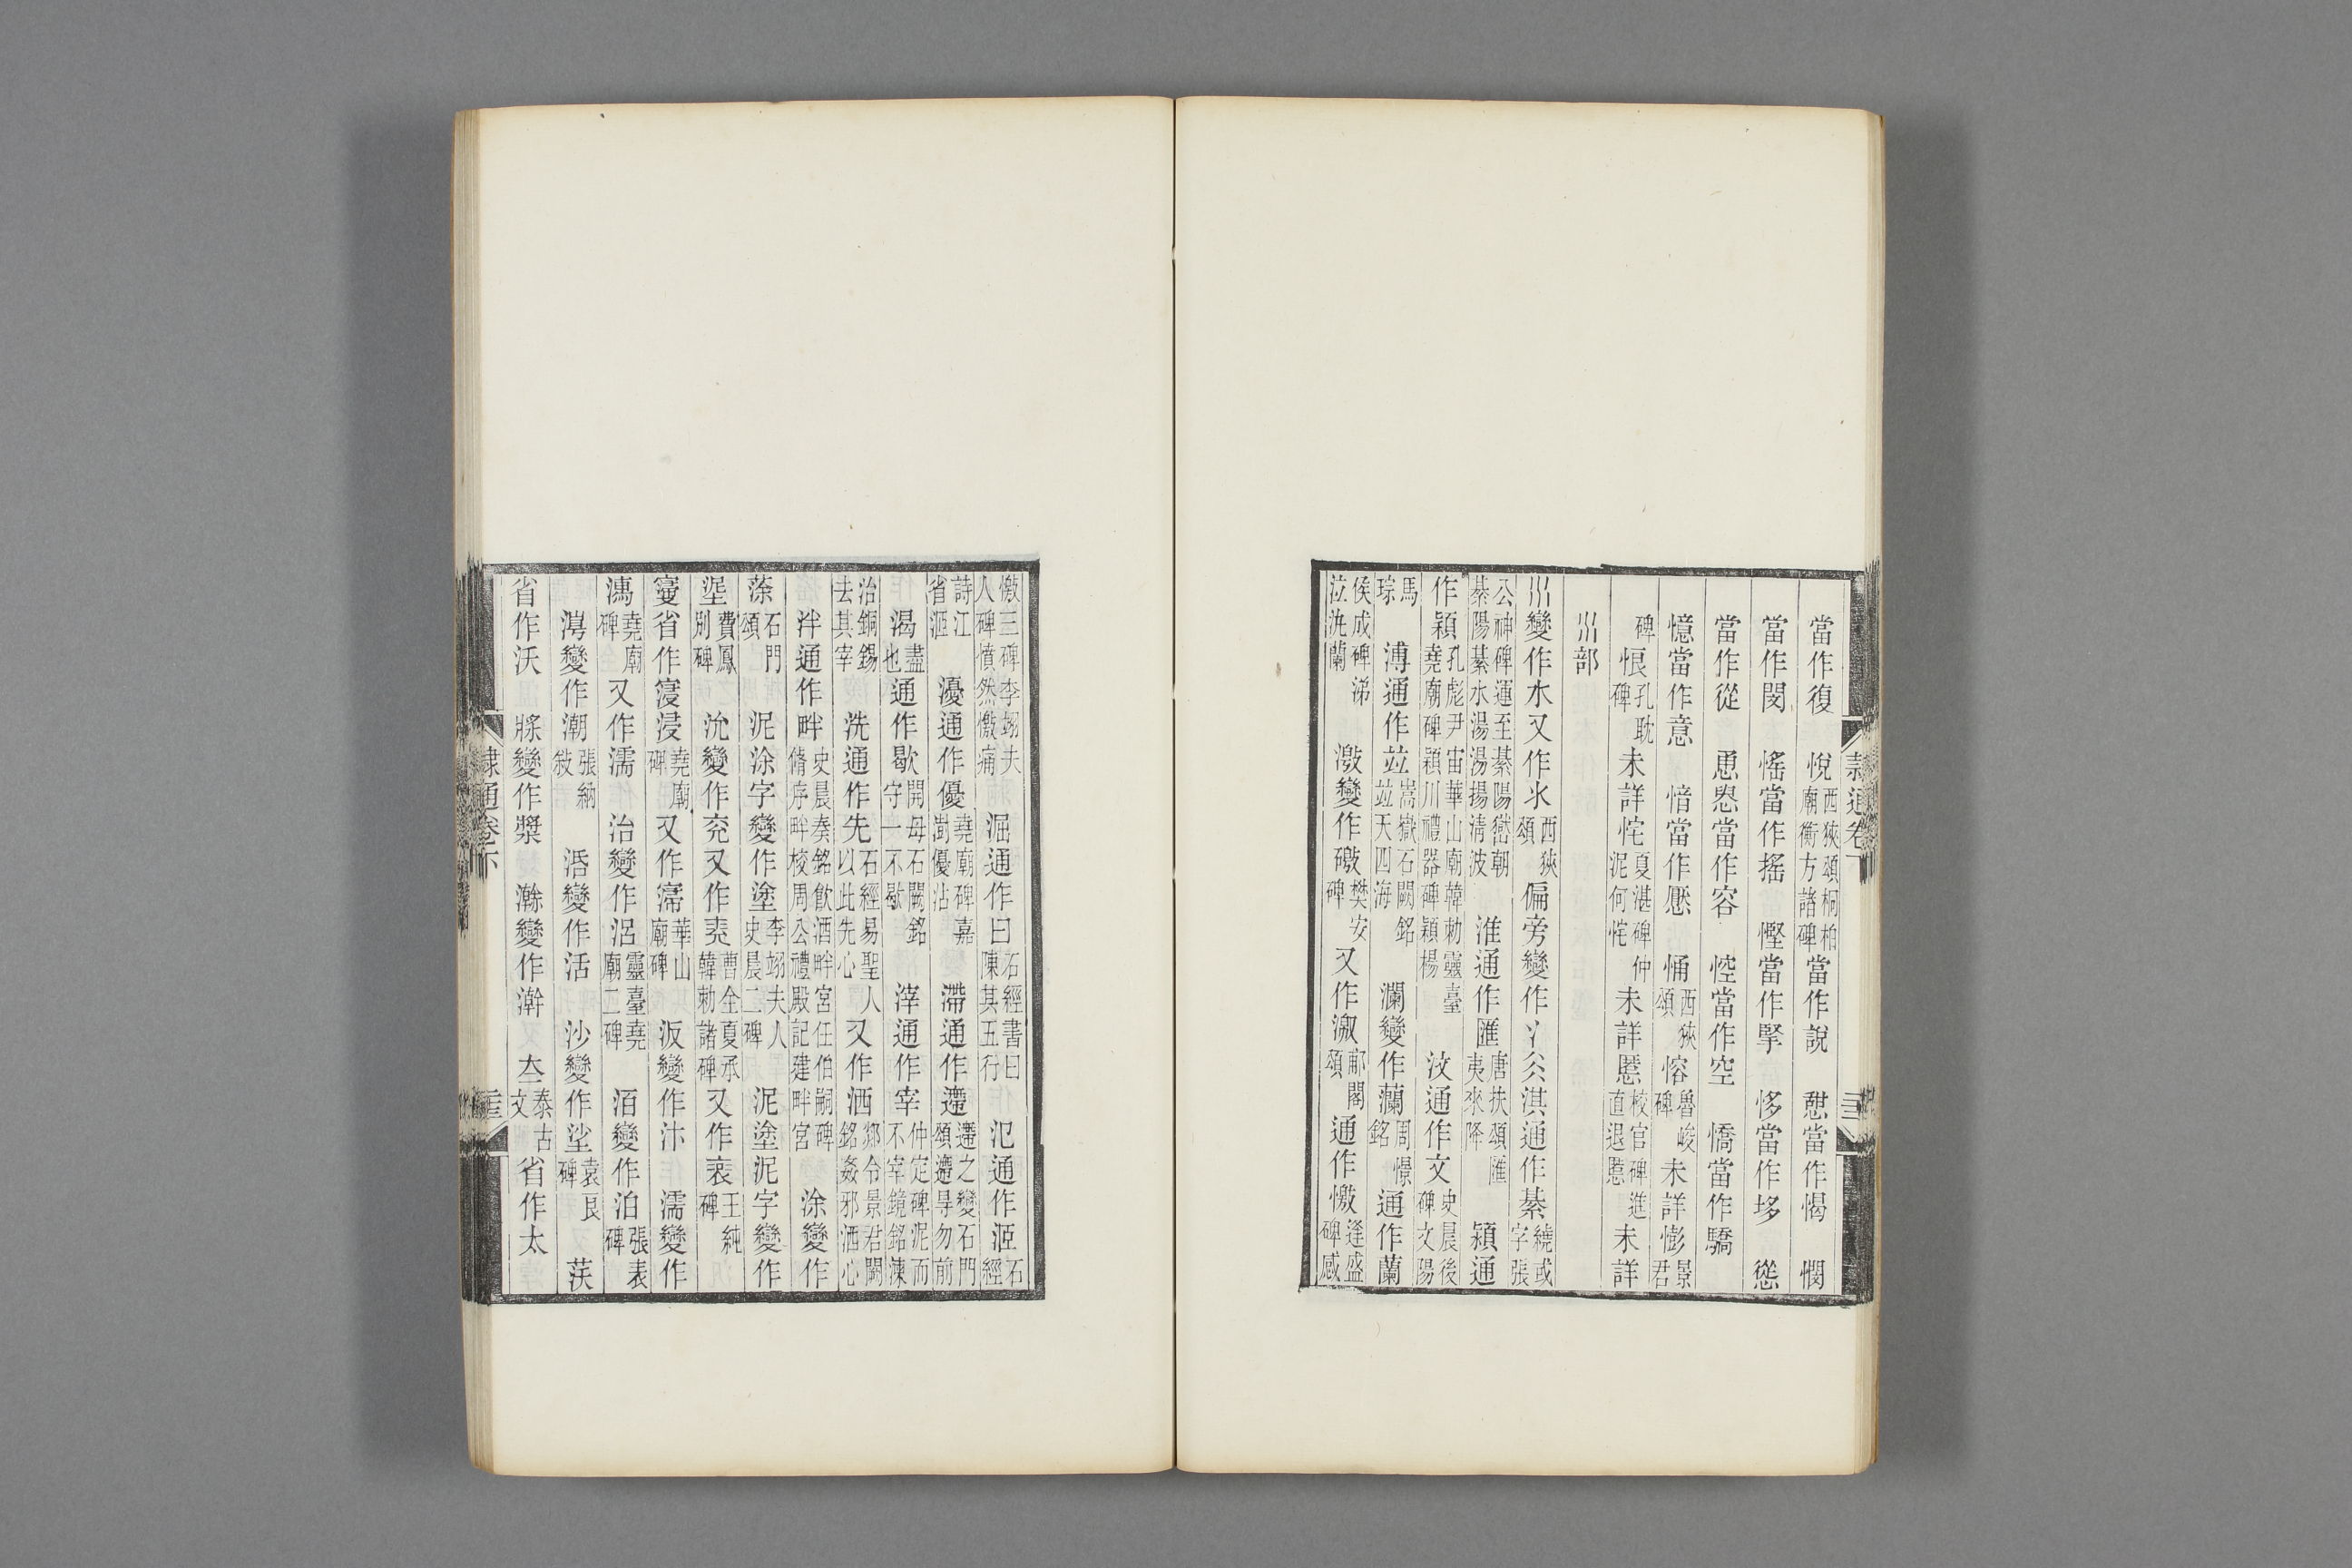 當作復　悅西狹頌桐柏廟衡方諸碑當作說　㥦當作愒　憪
當作閔　愮當作搖　慳當作掔　恀當作垑　慫
當作從　恿㤟當作容　悾當作空　憍當作驕
憶當作意　愔當作懕　悀西狹頌　愹魯峻碑未詳憉景君
碑　恨孔耽碑未詳恠夏湛碑仲泥何恠未詳慝校官碑進直退慝未詳
巛部
巛變作水又作氺西狹頌偏旁變作氵淇通作綦繞或字張
公神碑運至綦陽嶅朝綦陽綦水湯湯揚清波　淮通作匯唐扶頌匯夷來降　潁通
作穎孔彪尹宙華山廟韓勑靈臺堯廟碑穎川禮器碑穎楊　汶通作文史晨後碑文陽
馬琮　溥通作竝嵩嶽石闕銘竝天四海　瀾變作蘭周憬銘通作蘭
侯成碑涕泣沇蘭　激變作礉樊安碑又作㵾郙閣頌通作憿逢盛碑感
隸通卷下
憿三碑李翊夫人碑憤然憿痛　淈通作曰石經書曰陳其五行　氾通作洍石經
詩江省洍　瀀通作優堯廟碑嘉澍優沾　滯通作遰遰之變石門頌遰㝵勿前
渴盡也通作歇開母石闕銘守一不歇　滓通作宰仲定碑泥而不宰鏡銘湅
治銅錫去其宰　洗通作先石經易聖人以此先心　又作洒郯令景君闕銘姦邪洒心
泮通作畔史晨奏銘飲酒畔宮任伯嗣碑脩序畔校周公禮殿記建畔宮　涂變作
蒤石門頌　泥涂字變作塗李翊夫人史晨二碑　泥塗泥字變作
埿費鳳別碑　沇變作兖又作兗曹全夏承韓勑諸碑又作衮王純碑
𡫏省作寖浸堯廟碑又作㵗華山廟碑　汳變作汴　濡變作
㵖堯廟碑又作濡　治變作㳭靈臺堯廟二碑　洦變作泊張表碑
淖變作潮張納敍　湉變作活　沙變作乷袁良碑　茨
省作沃　㢡變作漿　瀚變作澣　夳泰古文省作太
隸通卷下